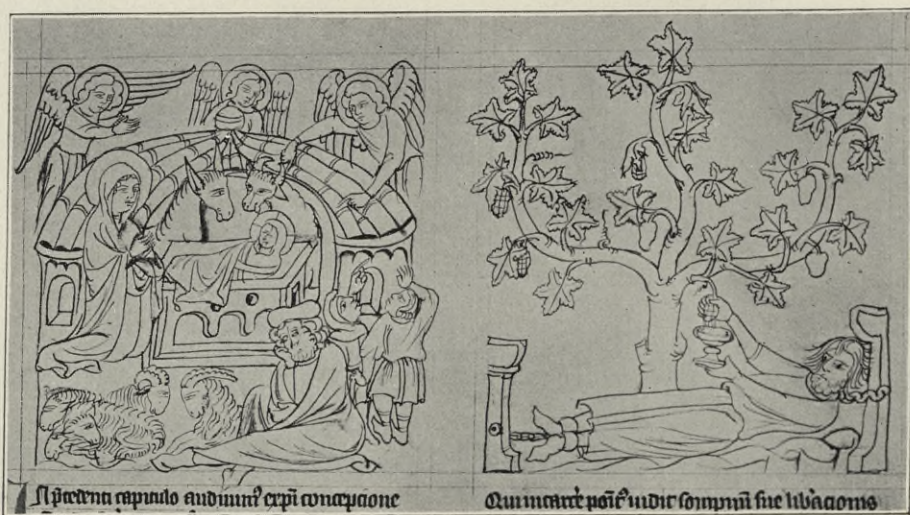 In p̄cedenti capitulo audiuim⁹ xp̄i concepcione
Qui in carc̄e posit⁹ uidit sompniū sue lib̄acionis